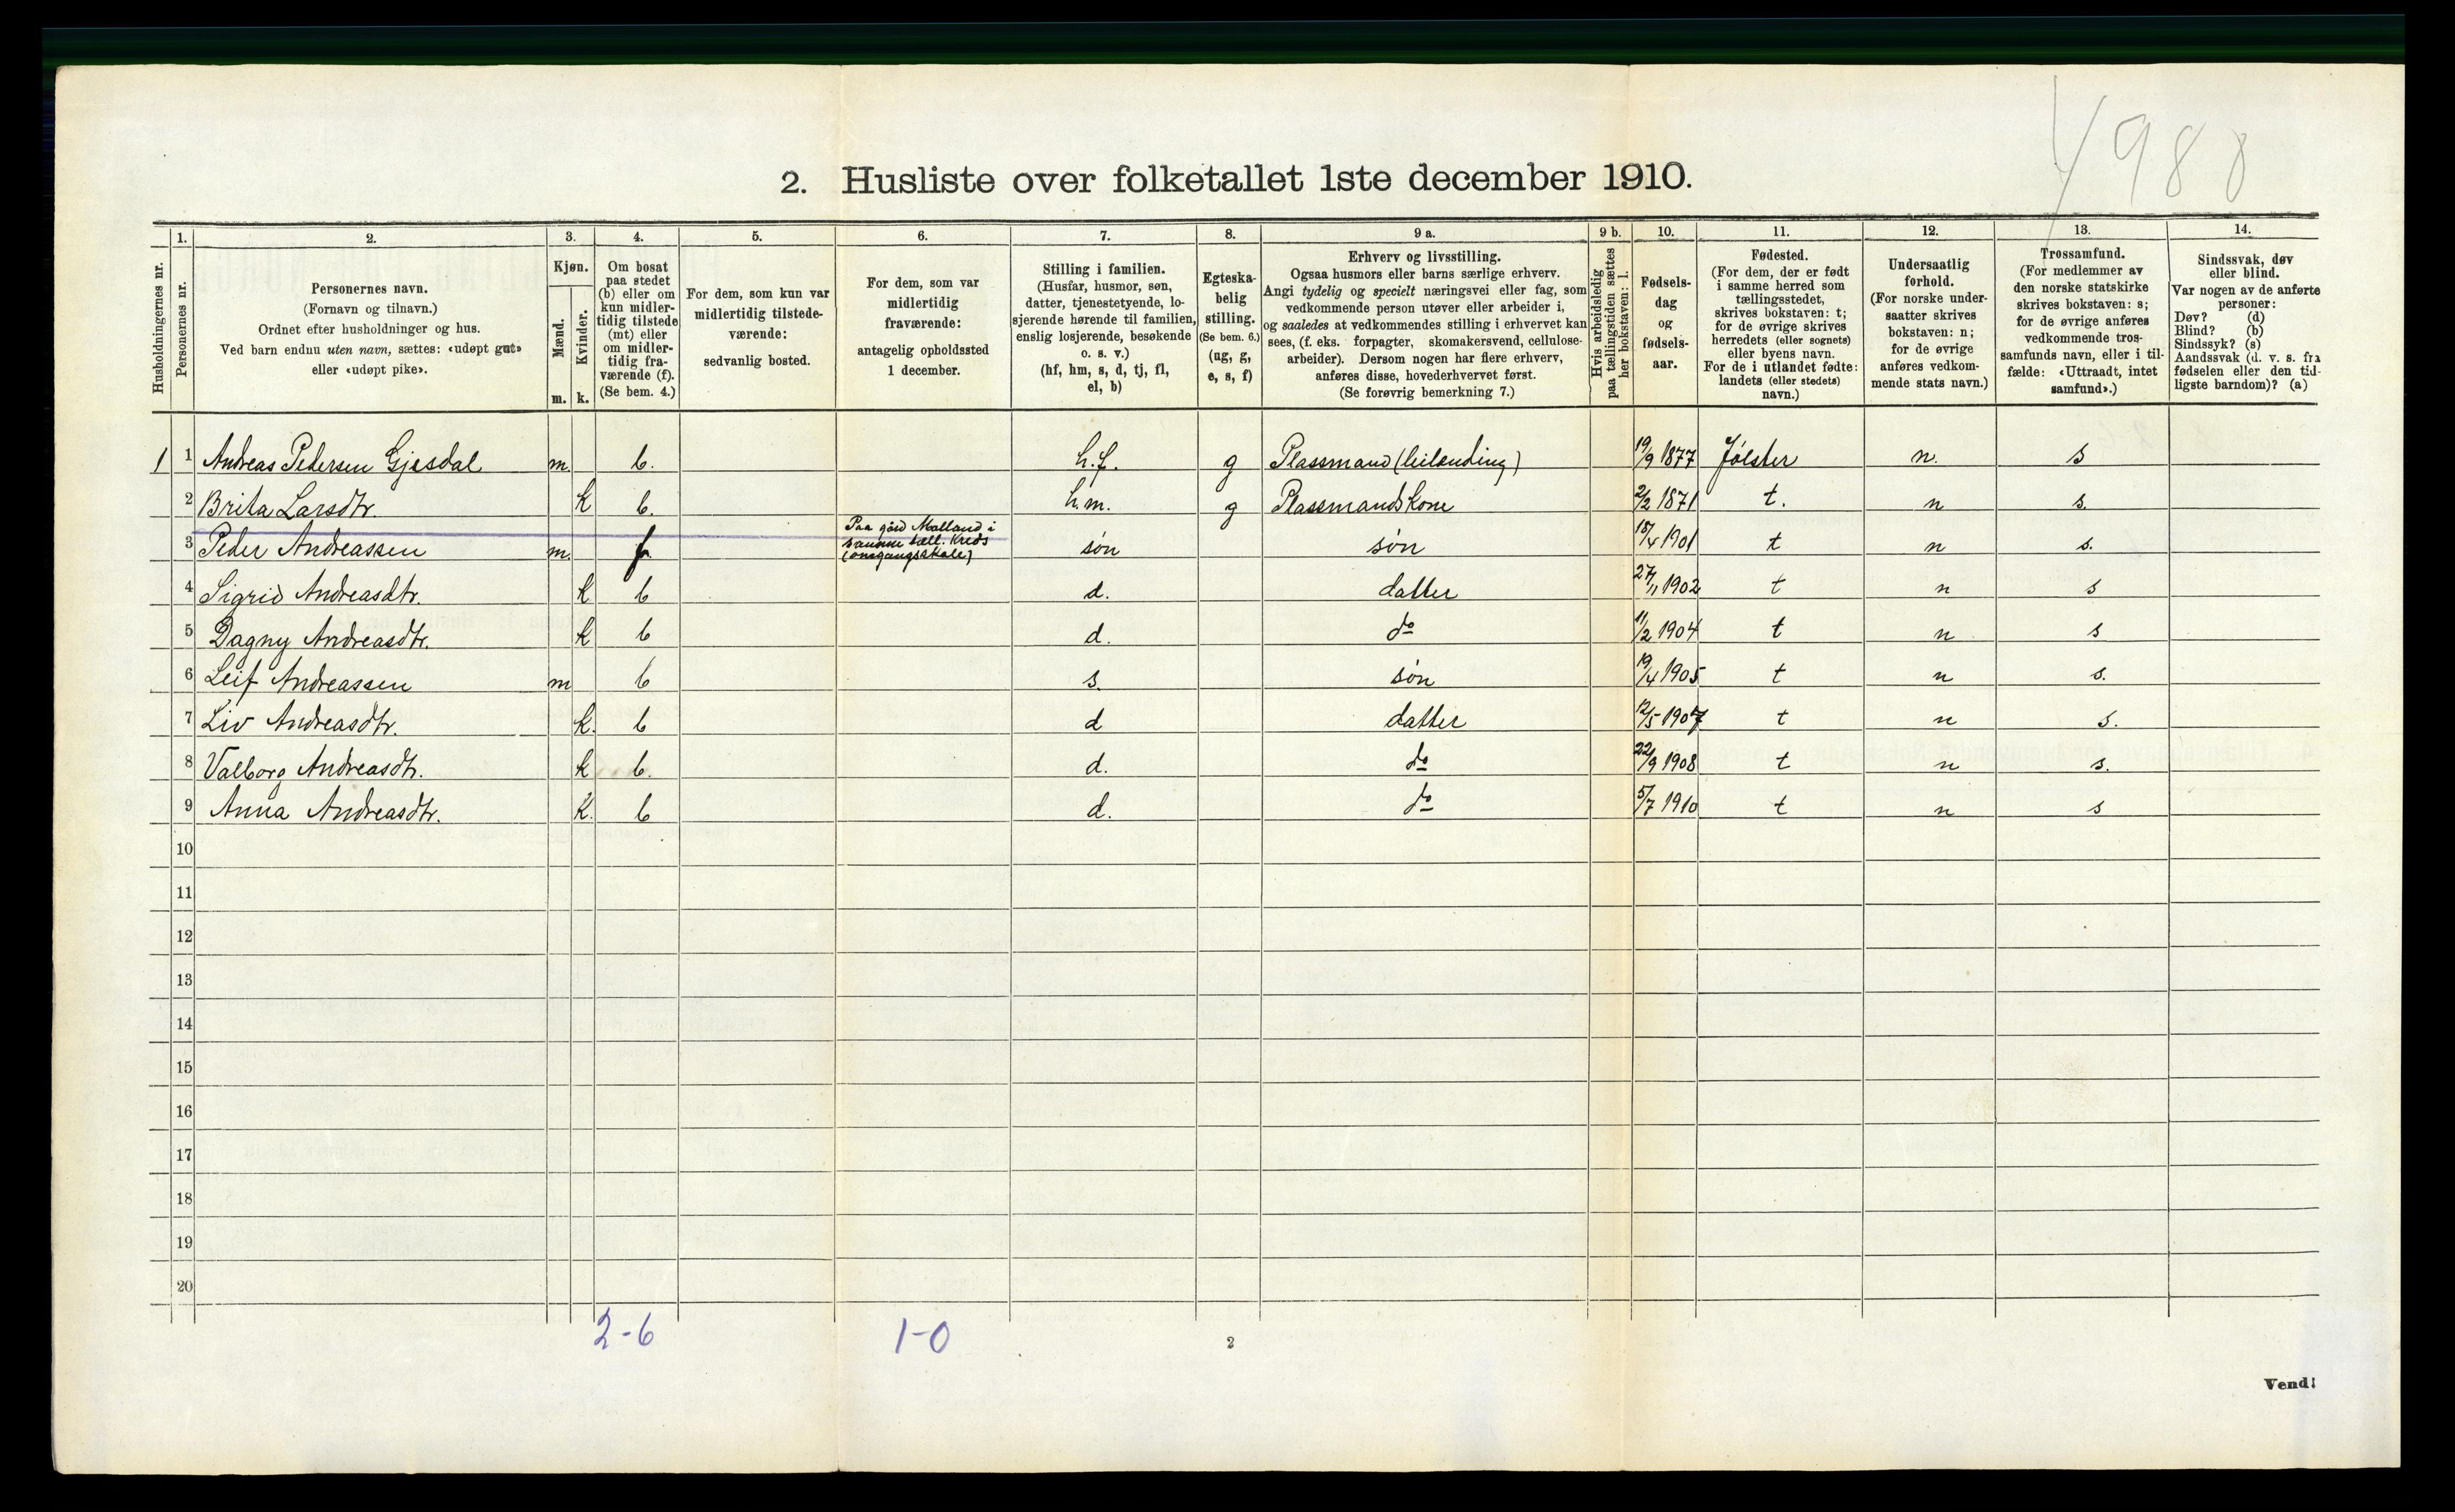 4988
2. Husliste over folketallet 1ste december 1910.
Husholdningernes nr.
1.
Personernes nr.
2.
Personernes navn.
(Fornavn og tilnavn.)
Ordnet efter husholdninger og hus.
Ved barn endnu uten navn, sættes: «udøpt gut»
eller «udøpt pike».
3.
Kjøn.
Mænd.
Kvinder.
m. k.
4.
Om bosat
paa stedet
(b) eller om
kun midler-
tidig tilstede
(mt) eller
om midler-
tidig fra-
værende (f).
(Se bem. 4.)
5.
For dem, som kun var
midlertidig tilstede-
værende:
sedvanlig bosted.
6.
For dem, som var
midlertidig
fraværende:
antagelig opholdssted
1 december.
7.
Stilling i familien.
(Husfar, husmor, søn,
datter, tjenestetyende, lo-
sjerende hørende til familien,
enslig losjerende, besøkende
o. s. v.)
(hf, hm, s, d, tj, fl,
el, b)
8.
Egteska-
belig
stilling.
(Se bem. 6.)
(ug, g,
e, s, f)
9 a.
Erhverv og livsstilling.
Ogsaa husmors eller barns særlige erhverv.
Angi tydelig og specielt næringsvei eller fag, som
vedkommende person utøver eller arbeider i,
og saaledes at vedkommendes stilling i erhvervet kan
sees, (f. eks. forpagter, skomakersvend, cellulose-
arbeider). Dersom nogen har flere erhverv,
anføres disse, hovederhvervet først.
(Se forøvrig bemerkning 7.)
9 b.
Hvis arbeidsledig
paa tællingstiden sættes
her bokstaven: l.
10.
Fødsels-
dag
og
fødsels-
aar.
11.
Fødested.
(For dem, der er født
i samme herred som
tællingsstedet,
skrives bokstaven: t;
for de øvrige skrives
herredets (eller sognets)
eller byens navn.
For de i utlandet fødte:
landets (eller stedets)
navn.)
12.
Undersaatlig
forhold.
(For norske under-
saatter skrives
bokstaven: n;
for de øvrige
anføres vedkom-
mende stats navn.)
13.
Trossamfund.
(For medlemmer av
den norske statskirke
skrives bokstaven: s;
for de øvrige anføres
vedkommende tros-
samfunds navn, eller i til-
fælde: «Uttraadt, intet
samfund».)
14.
Sindssvak, døv
eller blind.
Var nogen av de anførte
personer:
Døv? (d)
Blind? (b)
Sindssyk? (s)
Aandssvak (d. v. s. fra
fødselen eller den tid-
ligste barndom)? (a)
1 1 Andreas Pedersen Gjesdal m. b. h.f. g Plassmand (leilending) 19/9 1877 Jølster n. s
2 Brita Larsdtr. k b. h.m. g Plassmandskone 2/2 1871 t. n s.
3 Peder Andreassen m. f. Paa gård Molland i
samme tæll. Kreds
(omgangsskole) søn søn 15/4 1901 t n s.
4 Sigrid Andreasdtr. k b d. datter 27/11 1902 t n s
5 Dagny Andreasdtr. k b d. do 11/2 1904 t n s
6 Leif Andreassen m b s. søn 19/4 1905 t n s.
7 Liv Andreasdtr. k. b d datter 12/5 1907 t n s.
8 Valborg Andreasdtr. k b. d. do 22/9 1908 t n s.
9 Anna Andreasdtr. k. b d. do 5/7 1910 t n s
10
11
12
13
14
15
16
17
18
19
20
2-6 1-0
2
Vend!